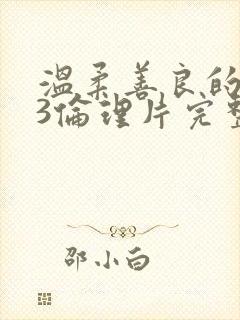 溫柔善良的
3倫理片完整
邵小白